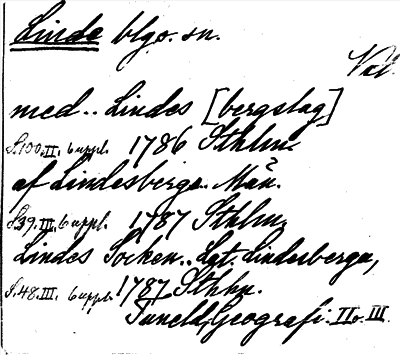 Linde blgo. sn.
Vet.
med.. Lindes [bergslag]
S.100.II. 6 uppl. 1786 Sthlm.
af Lindesbergs. Män.
S.39.III. 6 uppl. 1787 Sthlm.
Lindes Socken.. Lgt. Lindesbergn,
S.48.III. 6 uppl. 1787 Sthlm.
Tuneld, Geografi. II o. III.